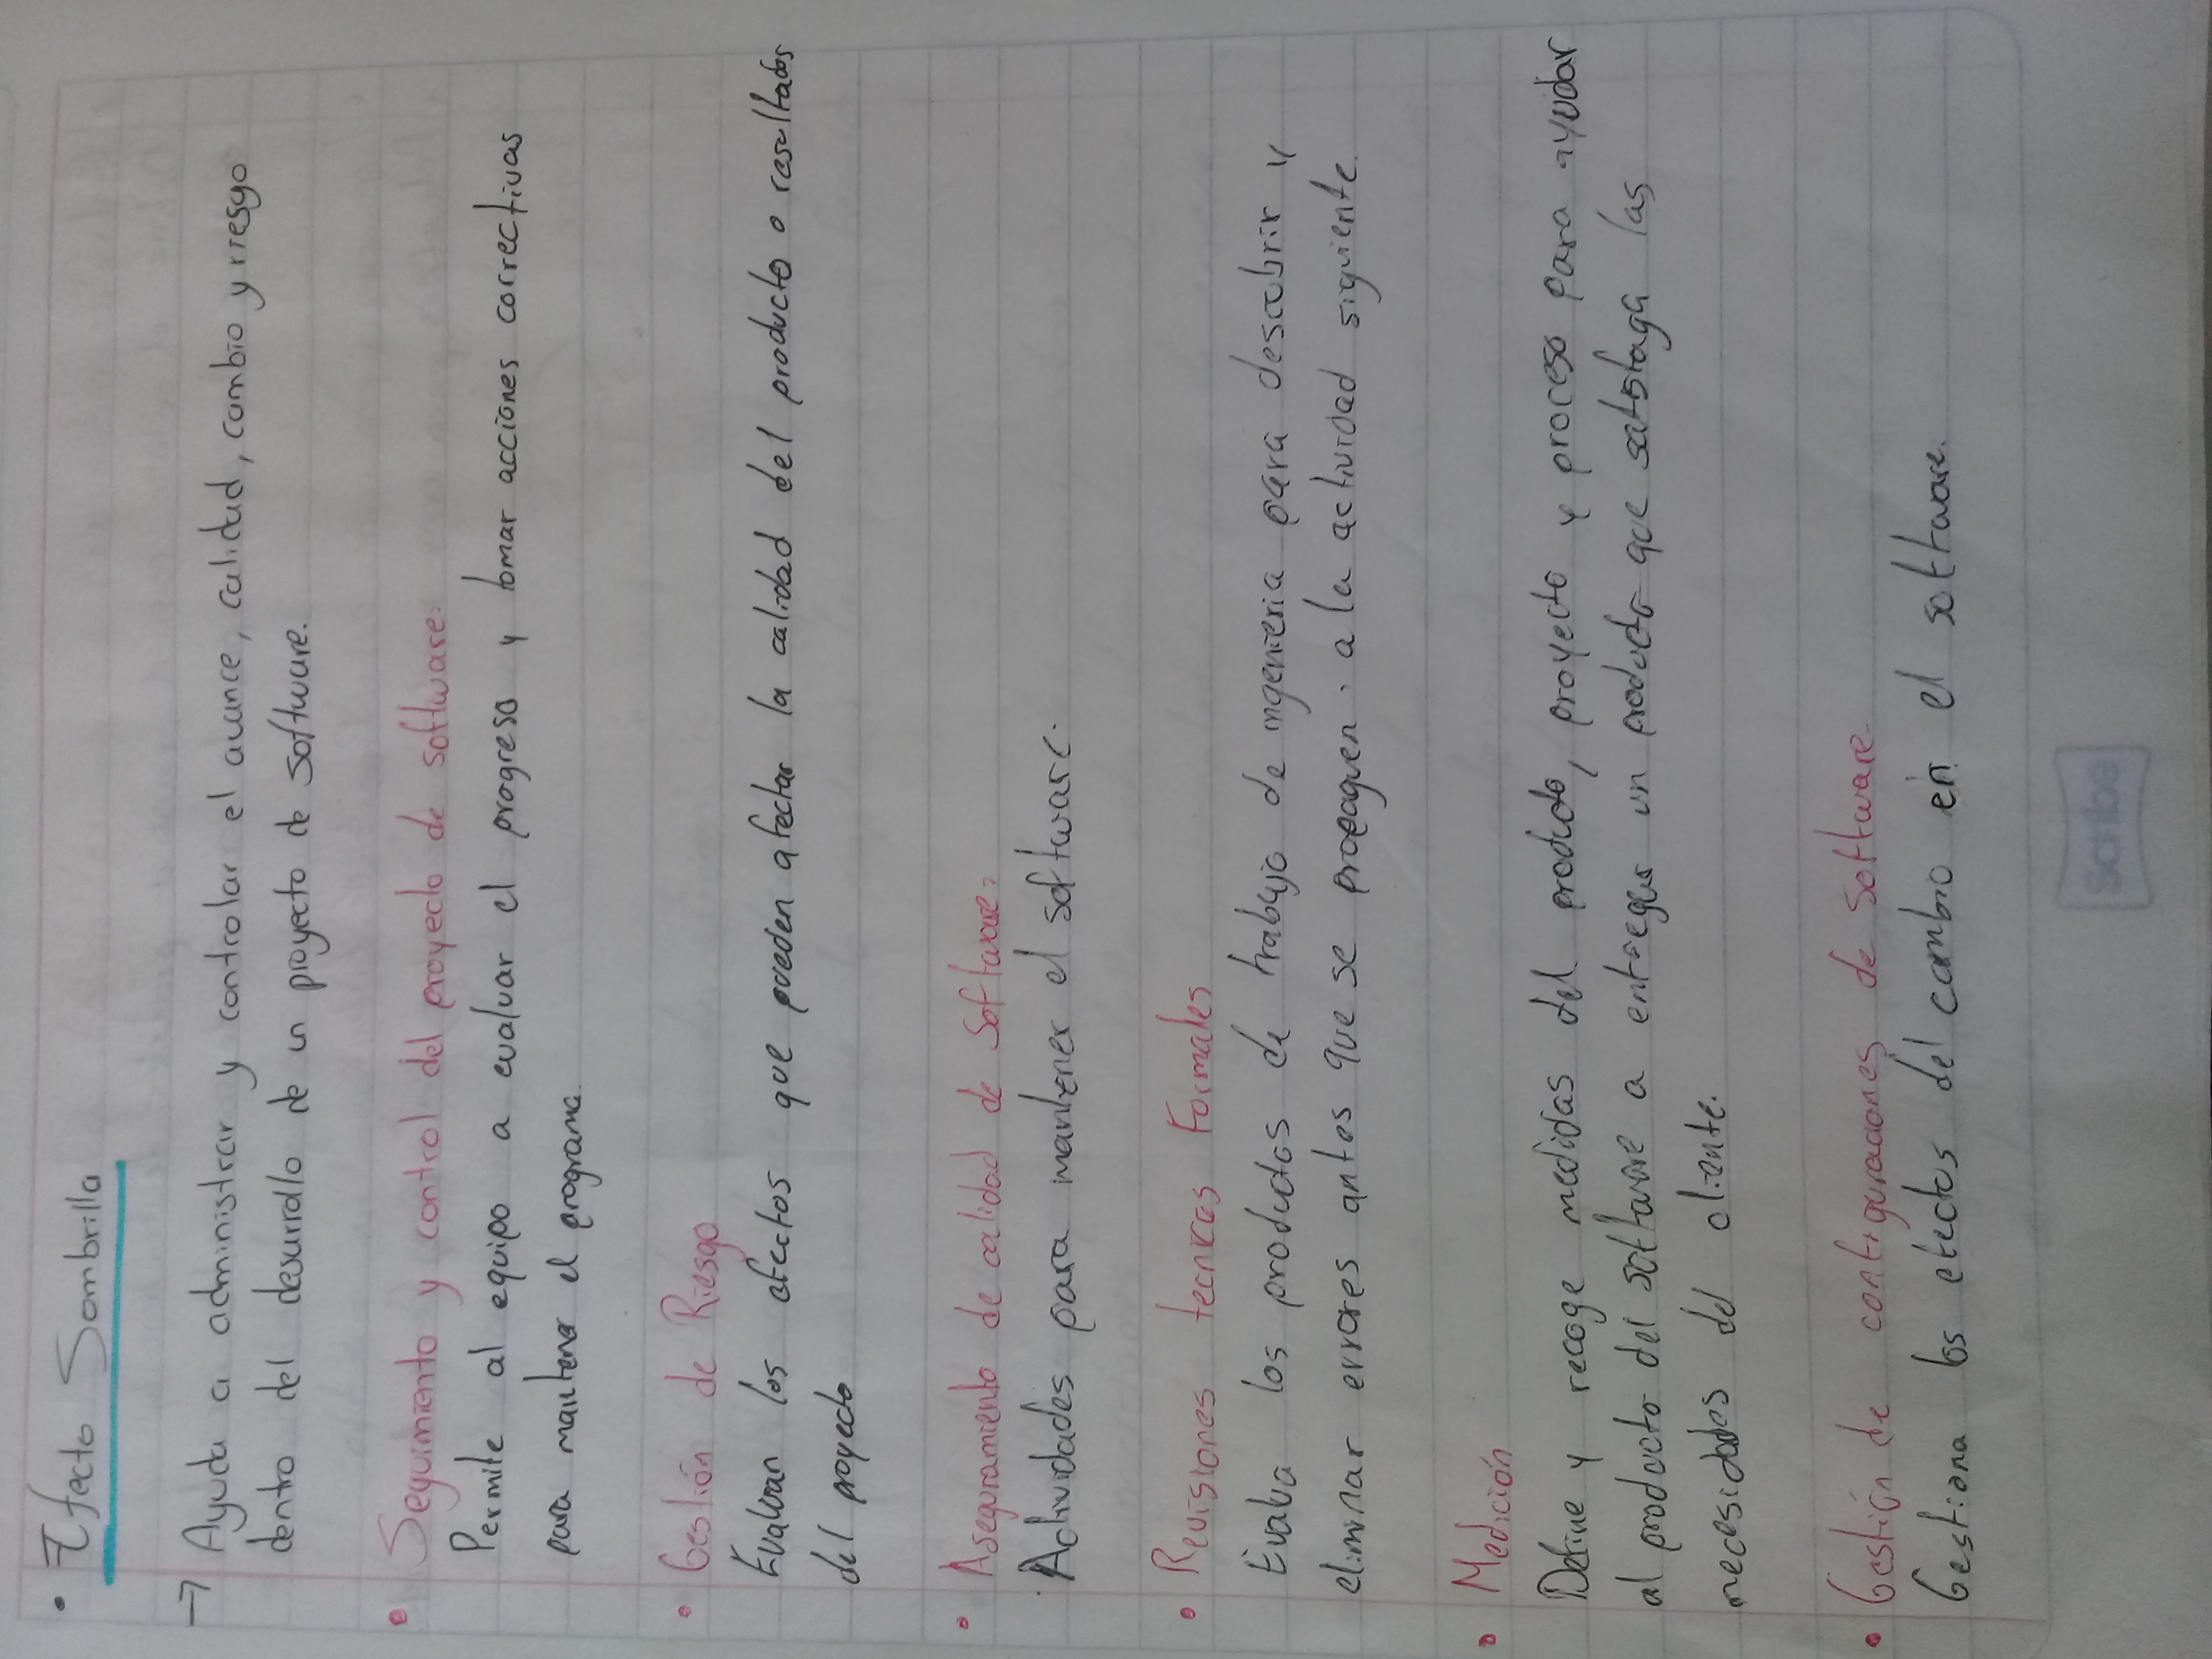 • Efecto Sombrilla
→ Ayuda a administrar y controlar el avance, calidad, cambio y riesgo
dentro del desarrollo de un proyecto de software.
• Seguimiento y control del proyecto de software:
Permite al equipo a evaluar el progreso y tomar acciones correctivas
para mantener el programa.
• Gestión de Riesgo
Evaluan los efectos que pueden afectar la calidad del producto o resultados
del proyecto
• Aseguramiento de calidad de Software:
Actividades para mantener el software.
• Revisiones tecnicas Formales
Evalua los productos de trabajo de ingenieria para descubrir y
eliminar errores antes que se propaguen a la actividad siguiente.
• Medición
Define y recoge medidas del producto, proyecto y proceso para ayudar
al producto del software a entregar un producto que satisfaga las
necesidades del cliente.
• Gestión de configuraciones de software
Gestiona los efectos del cambio en el software.
Scribe